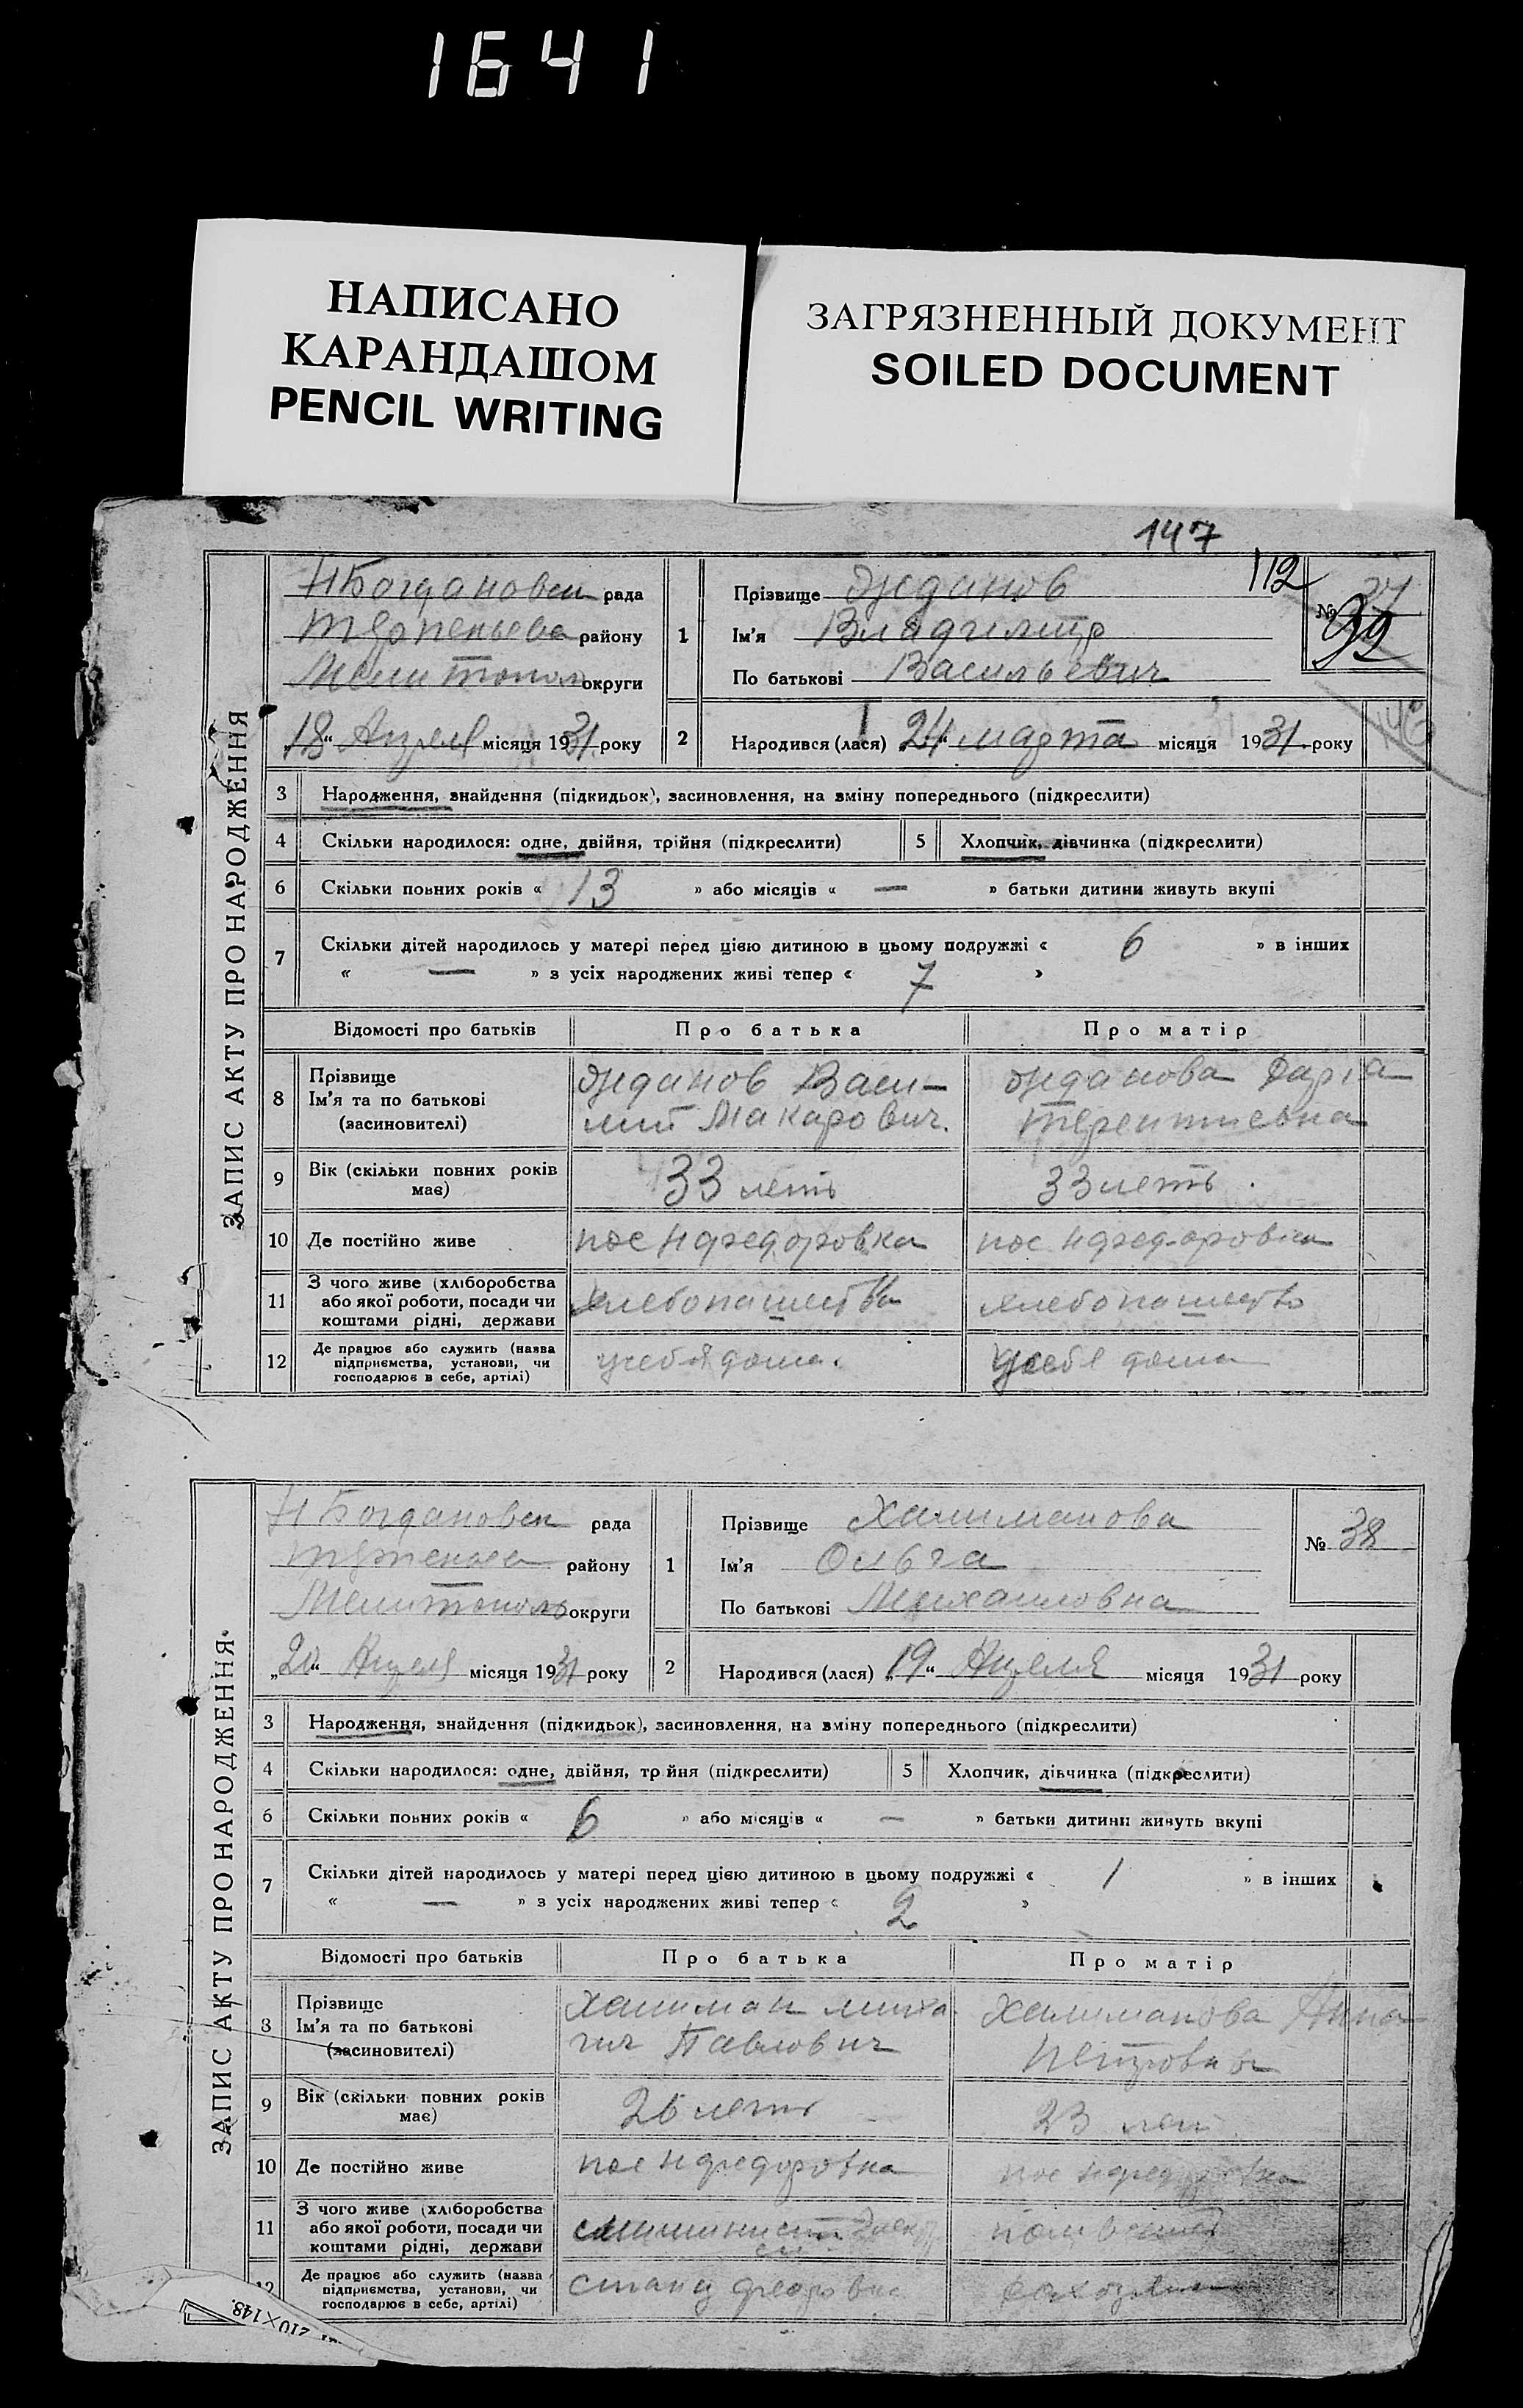 1641
НАПИСАНО
КАРАНДАШОМ
PENCIL WRITING
ЗАГРЯЗНЕННЫЙ ДОКУМЕНТ
SOILED DOCUMENT
147
112
ЗАПИС АКТУ ПРО НАРОДЖЕННЯ
НБогдановск рада
Терпеньева району
Мелитополь округи
„18“ Апреля місяця 1931 року
1
Прізвище Жданов
Ім'я Владимир
По батькові Васильевич
№ 39
2
Народився (лася) „24“ марта місяця 1931 року
3 Народження, знайдення (підкидьок), засиновлення, на зміну попереднього (підкреслити)
4 Скільки народилося: одне, двійня, трійня (підкреслити) 5 Хлопчик, дівчинка (підкреслити)
6 Скільки повних років « 13 » або місяців « — » батьки дитини живуть вкупі
7 Скільки дітей народилось у матері перед цією дитиною в цьому подружжі « 6 » в інших
« — » з усіх народжених живі тепер « 7 »
Відомості про батьків Про батька Про матір
8 Прізвище
Ім'я та по батькові
(засиновителі)
Жданов Васи-
лий Макарович.
Жданова Дария
Терентиевна
9 Вік (скільки повних років
має)
33 летъ
33 летъ.
10 Де постійно живе пос Нфедоровка пос Нфедоровка
11 З чого живе (хліборобства
або якої роботи, посади чи
коштами рідні, держави
хлебопашества
хлебопашество
12 Де працює або служить (назва
підприємства, установи, чи
господарює в себе, артілі)
усебя дома.
усебя дома
ЗАПИС АКТУ ПРО НАРОДЖЕННЯ
Н Богдановск рада
району
Мелитополь округи
„20“ Апреля місяця 1931 року
1
Прізвище Халиманова
Ім'я Ольга
По батькові Михаиловна
№ 38
2
Народився (лася) „19“ Апреля місяця 1931 року
3 Народження, знайдення (підкидьок), засиновлення, на зміну попереднього (підкреслити)
4 Скільки народилося: одне, двійня, трійня (підкреслити) 5 Хлопчик, дівчинка (підкреслити)
6 Скільки повних років « 6 » або місяців « — » батьки дитини живуть вкупі
7 Скільки дітей народилось у матері перед цією дитиною в цьому подружжі « 1 » в інших
« — » з усіх народжених живі тепер « 2 »
Відомості про батьків Про батька Про матір
8 Прізвище
Ім'я та по батькові
(засиновителі)
Халиман
Павлович
Халиманова Анна
Петровна
9 Вік (скільки повних років
має)
26 летъ
23 лет
10 Де постійно живе пос Нфедоровка пос Нфедоровка
11 З чого живе (хліборобства
або якої роботи, посади чи
коштами рідні, держави
12 Де працює або служить (назва
підприємства, установи, чи
господарює в себе, артілі)
210×148.